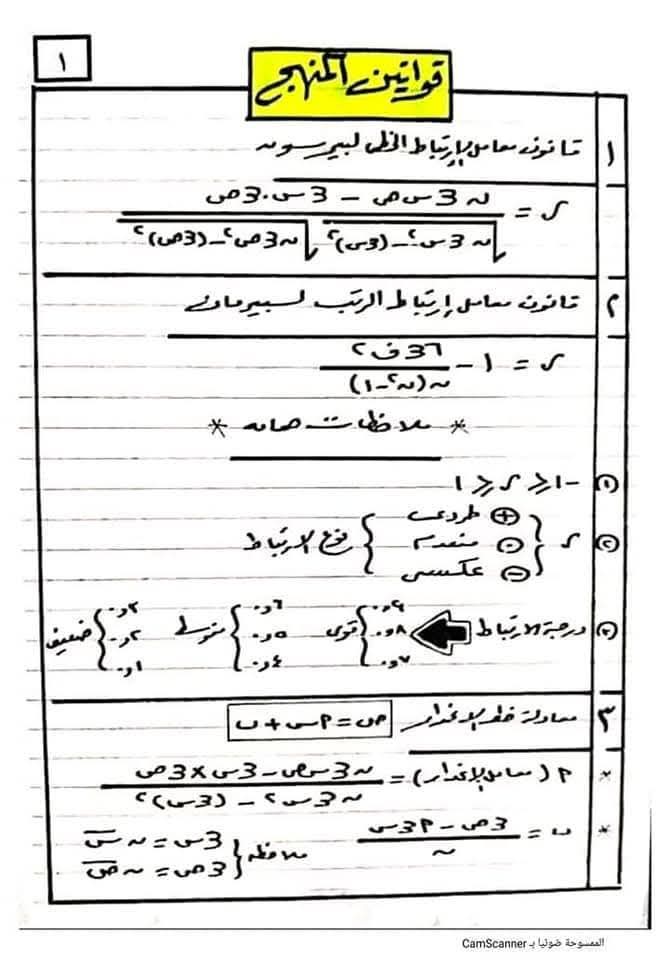 ١
قوانين المنهج
١ قانون معامل الإرتباط الخطى لبيرسون
ر = (ن ∑ س ص − ∑ س . ∑ ص) / (√(ن ∑ س² − (∑ س)²) √(ن ∑ ص² − (∑ ص)²))
٢ قانون معامل إرتباط الرتب لسبيرمان
ر = ١ − (٦ ∑ ف²) / (ن (ن² − ١))
* ملاحظات هامه *
① −١ ≤ ر ≤ ١
② ر { ⊕ طردى ⊙ منعدم ⊖ عكسى } نوع الارتباط
③ درجة الارتباط ٠٫٩ ٠٫٨ ٠٫٧ } قوى ٠٫٦ ٠٫٥ ٠٫٤ } متوسط ٠٫٣ ٠٫٢ ٠٫١ } ضعيف
٣ معادلة خط الإنحدار ص = ٩ س + ب
* ٩ (معامل الإنحدار) = (ن ∑ س ص − ∑ س × ∑ ص) / (ن ∑ س² − (∑ س)²)
* ب = (∑ ص − ٩ ∑ س) / ن
ملاحظه { ∑ س = ن س̅
∑ ص = ن ص̅
الممسوحة ضوئيا بـ CamScanner